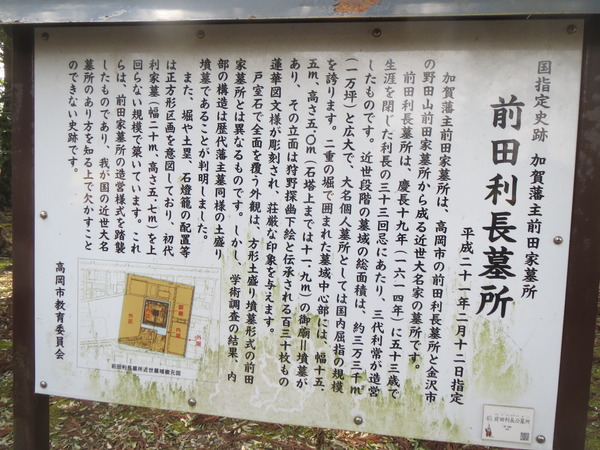 国指定史跡 加賀藩主前田家墓所
前田利長墓所
平成二十一年二月十二日指定
加賀藩主前田家墓所は、高岡市の前田利長墓所と金沢市
の野田山前田家墓所から成る近世大名家の墓所です。
前田利長墓所は、慶長十九年(一六一四年)に五十三歳で
生涯を閉じた利長の三十三回忌にあたり、三代利常が造営
したものです。近世段階の墓域の総面積は、約三万三千㎡
(一万坪)と広大で、大名個人墓所としては国内屈指の規模
を誇ります。二重の堀で囲まれた墓域中心部には、幅十五・
五m、高さ五・〇m(石塔上までは十一・九m)の御廟=墳墓が
あり、その立面は狩野探幽下絵と伝承される百三十枚もの
蓮華図文様が彫刻され、荘厳な印象を与えます。
戸室石で全面を覆う外観は、方形土盛り墳墓形式の前田
家墓所とは異なるものです。しかし、学術調査の結果、内
部の構造は歴代藩主墓同様の土盛り
墳墓であることが判明しました。
また、堀や土塁、石燈籠の配置等
は正方形区画を意図しており、初代
利家墓(幅二十m、高さ五・七m)を上
回らない規模で築いています。これ
らは、前田家墓所の造営様式を踏襲
したものであり、我が国の近世大名
墓所のあり方を知る上で欠かすこと
のできない史跡です。
高岡市教育委員会
前田利長墓所近世墓域復元図
前田利長公墓所